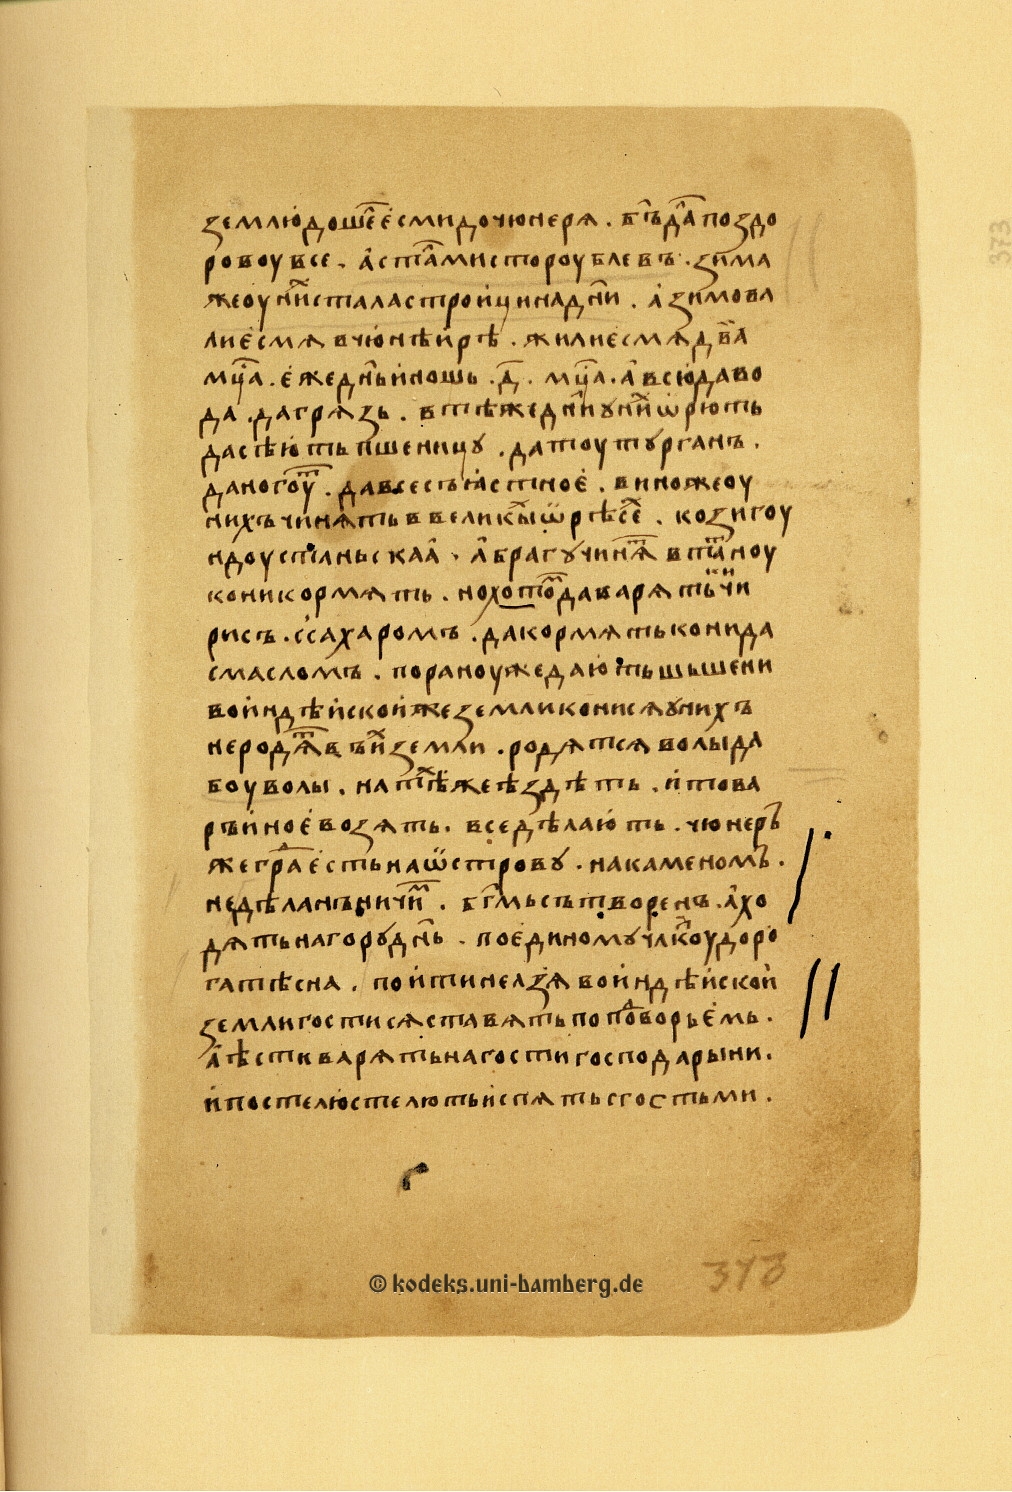 землю дошеⷧ есми до чюнеря . бг҃ъ даⷧ поздо
рову все . а стаⷧ ми сто роублевъ . зима
же оу ниⷯ стала с троицина дн҃и . а зимова
ли есмя в чюнѣирѣ . жили есмя два
мц҃а . еже дн҃ь и нощь . д҃ . мц҃а . а всюда во
да . да грязь . в тѣ же дн҃и у ниⷯ ѡрють
да сѣють пшеницу . да тоутурганъ .
да ногоуⷮ . да все съястное . вино же оу
них чинять в великыⷯ ѡрѣсеⷯ . кози гоу
ндоустаньскаа . а брагу чиняⷮ в таⷮноу
кони кормять . нохотоⷨ да варять кичи
рисъ . с сахаромъ . да кормять кони да
с маслом . порану же дають шьшени
во индѣиской же земли кони ся у них
не родяⷮ въ иⷯ земли . родятся волы да
боуволы . на тѣⷯ же ѣздѣть . и това
ръ иное возять . все дѣлають . чюнерь
же граⷣ есть на ѡстрову . на каменомъ .
не дѣланъ ничиⷨ . бг҃мь сътворенъ . а хо
дять на гору днь . по единому чл҃кѹ доро
га тѣсна . поити нелзя во индѣиской
земли гости ся ставять по поⷣворьемь .
а ѣсти варять на гости господарыни .
и постелю стелють и спять с гостьми .
© kodeks.uni-bamberg.de
373
373